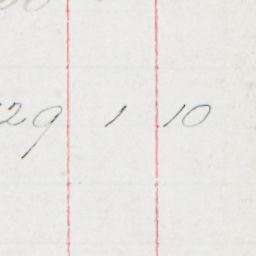 29 1 10